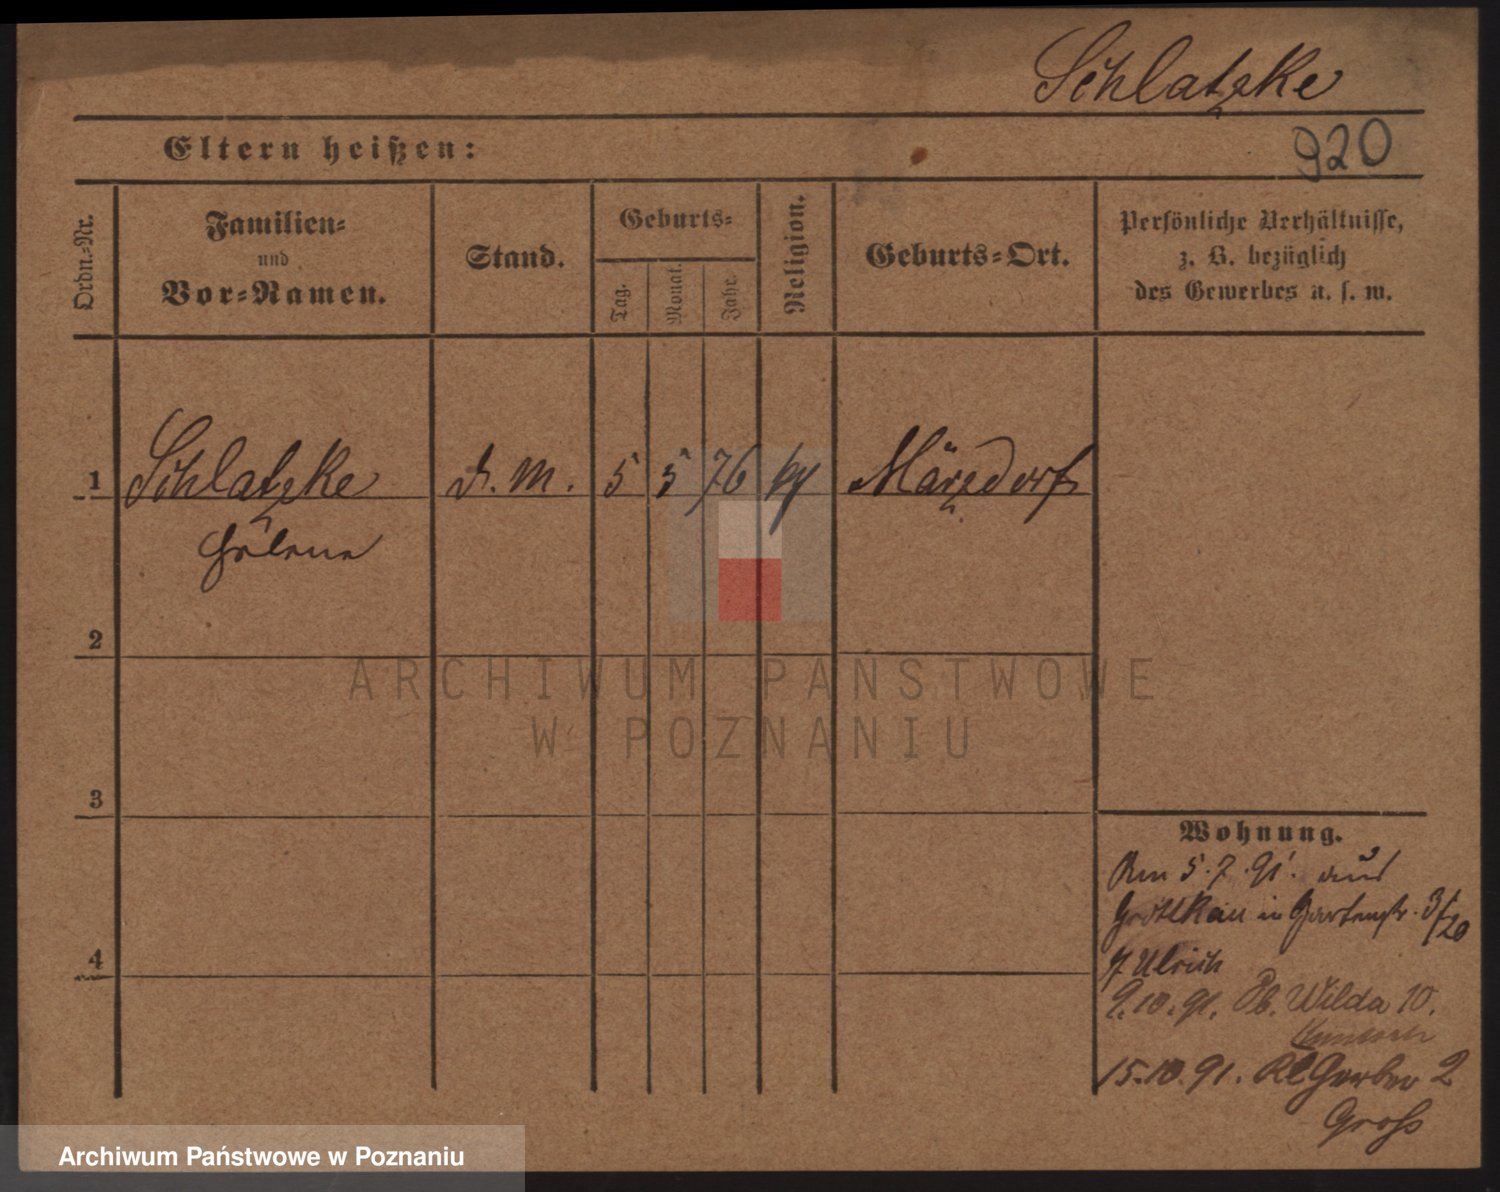 Schlatzke
920
Eltern heißen:
Ordn.-Nr.
Familien-
und
Vor-Namen.
Stand.
Geburts-
Tag.
Monat.
Jahr.
Religion.
Geburts-Ort.
Persönliche Verhältnisse,
z. B. bezüglich
des Gewerbes u. s. w.
1 Schlatzke d. M. 5 5 76 Märzdorf
Helene
2
3
4
Wohnung.
Am 5.7.91. aus
Grottkau in Gartenstr. 3/20
Ulrich
9.10.91. Ob. Wilda 10.
15.10.91. Kl Gerber 2
Gross
ARCHIWUM PAŃSTWOWE
W POZNANIU
Archiwum Państwowe w Poznaniu